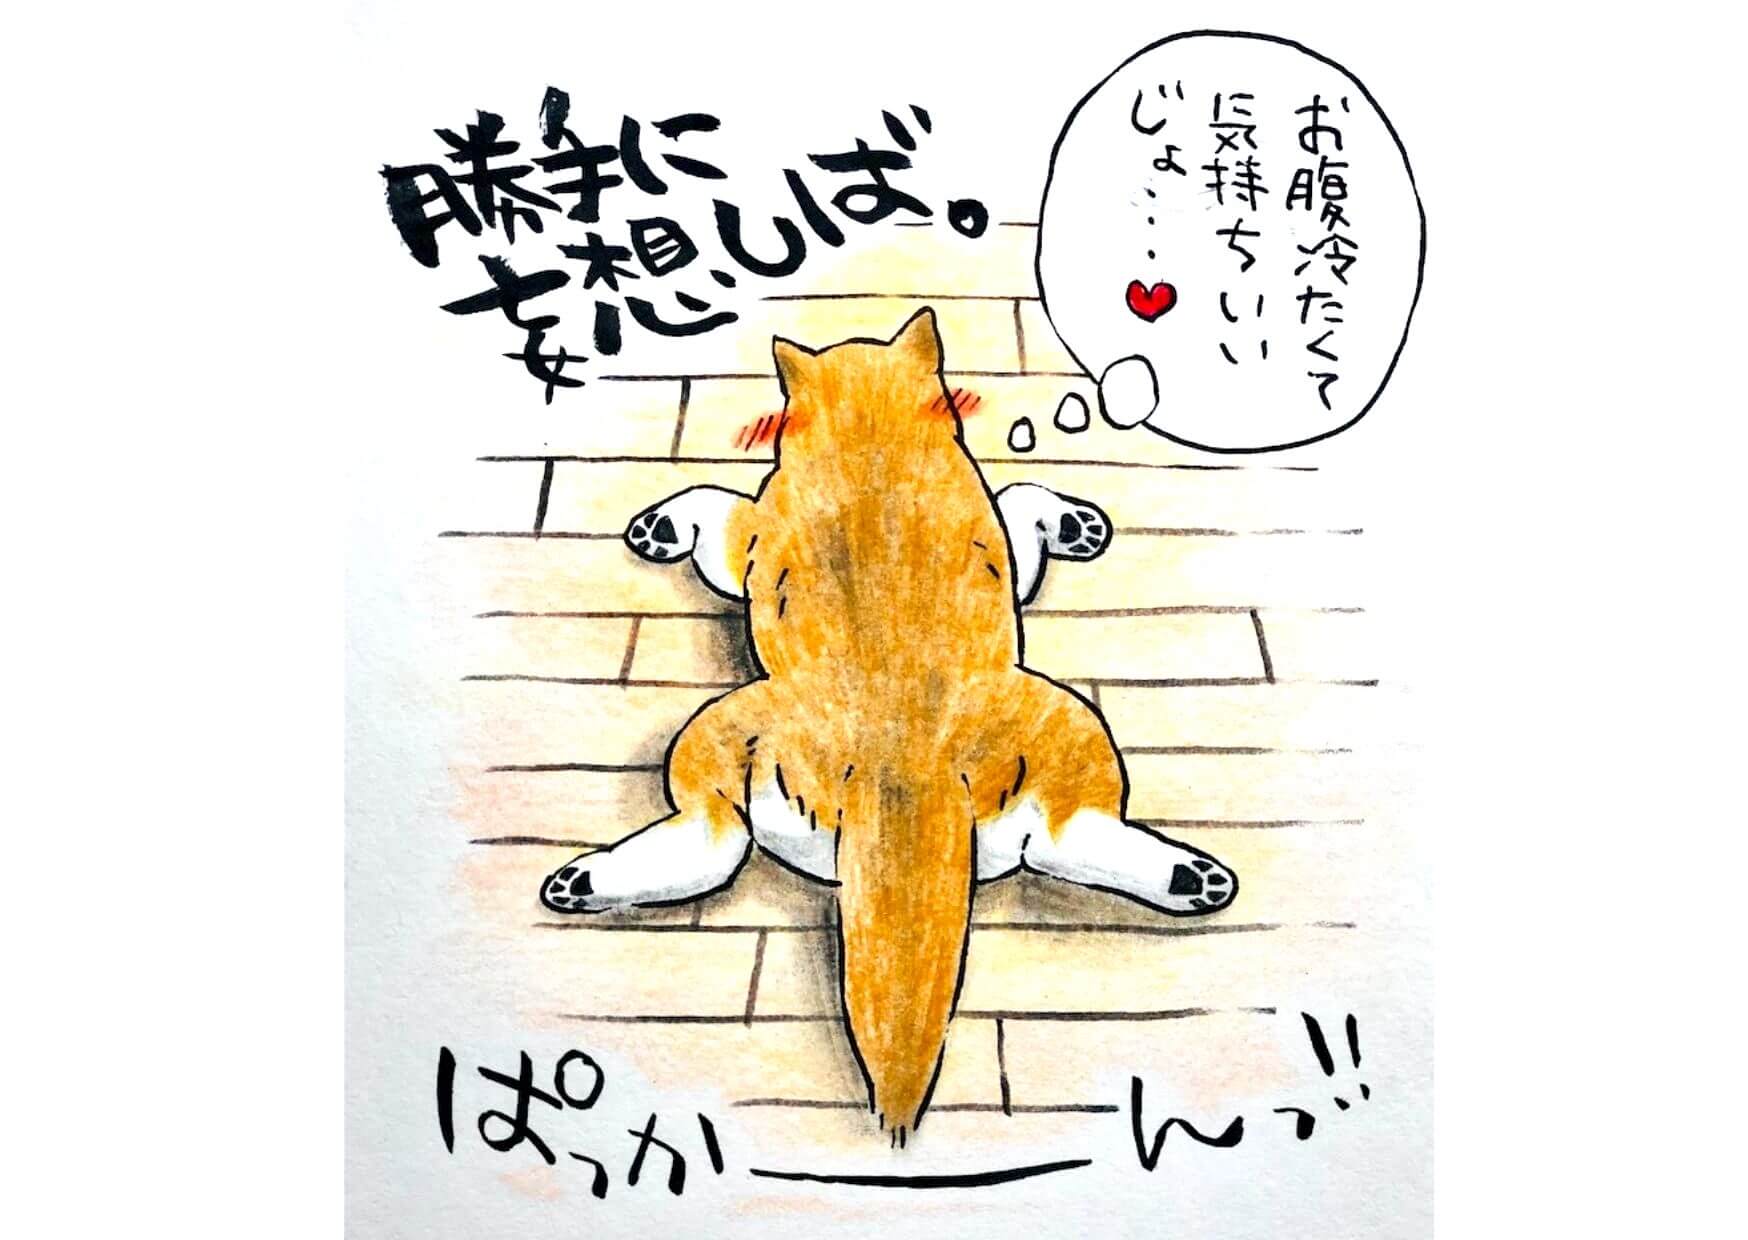 勝手に
妄想しば。
お腹冷たくて
に気持ちいい
じょ・・・
ぱっかーんっ!!